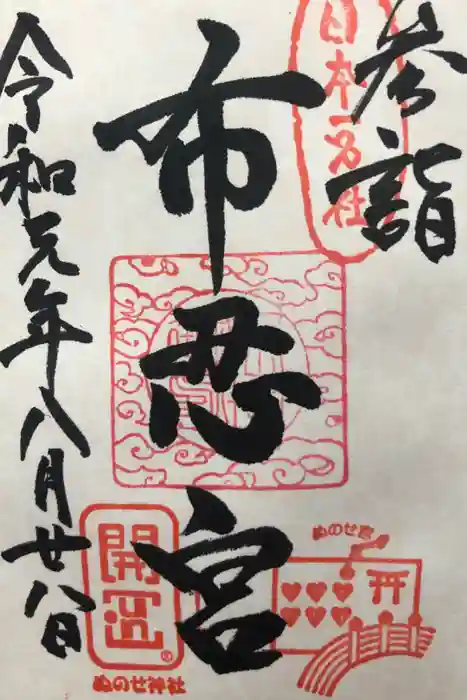 参詣
日本一名社
布忍宮
令和元年八月廿八日
開運
ぬのせ神社
ぬのせ宮